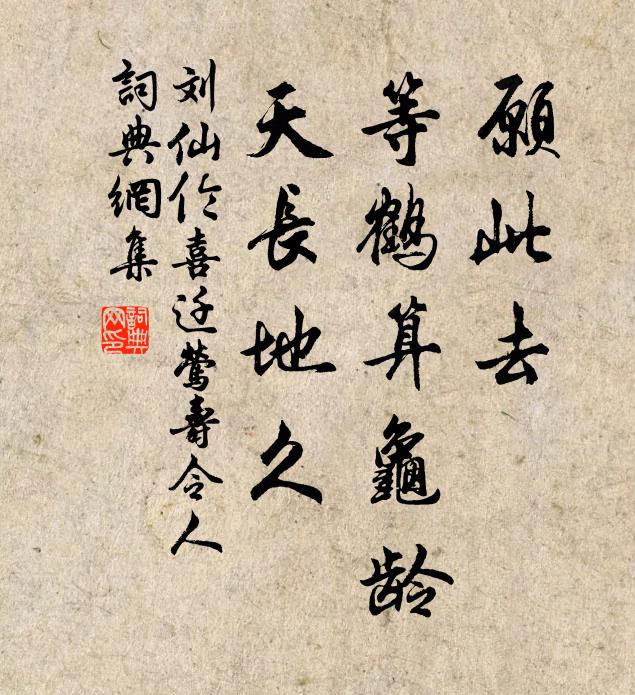 願此去
等鹤算龜龄
天長地久
刘仙伦喜迁莺壽令人
詞典網集
詞典網印